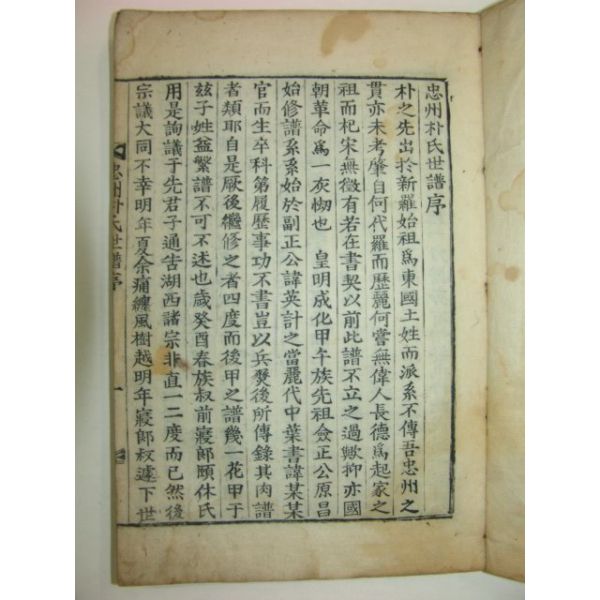 忠州朴氏世譜序
朴之先出於新羅始祖爲東國土姓而派系不傳吾忠州之
貫亦未考肇自何代羅而歷麗何嘗無偉人長德爲起家之
祖而杞宋無徵有若在書契以前此譜不立之過歟抑亦國
朝革命爲一灰惚也 皇明成化甲午族先祖僉正公原昌
始修譜系系始於副正公諱英計之當麗代中葉書諱某某
官而生卒科第履歷事功不書豈以兵燹後所傳錄其肉譜
者類耶自是厥後繼修之者四度而後甲之譜幾一花甲于
玆子姓益繁譜不可不述也歲癸酉春族叔前寢郎頤休氏
用是詢議于先君子通告湖西諸宗非直一二度而已然後
宗議大同不幸明年夏余痛纏風樹越明年寢郎叔遽下世
忠州朴氏世譜序
一